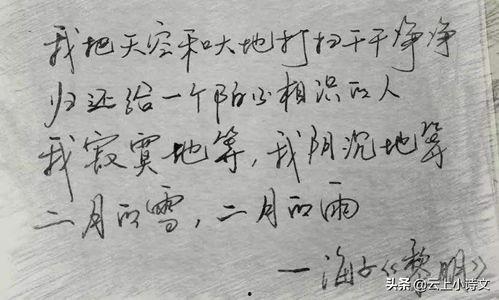 我把天空和大地打扫干干净净
归还给一个陌不相识的人
我寂寞地等，我阴沉地等
二月的雪，二月的雨
—海子《黎明》
头条 @云上小诗文